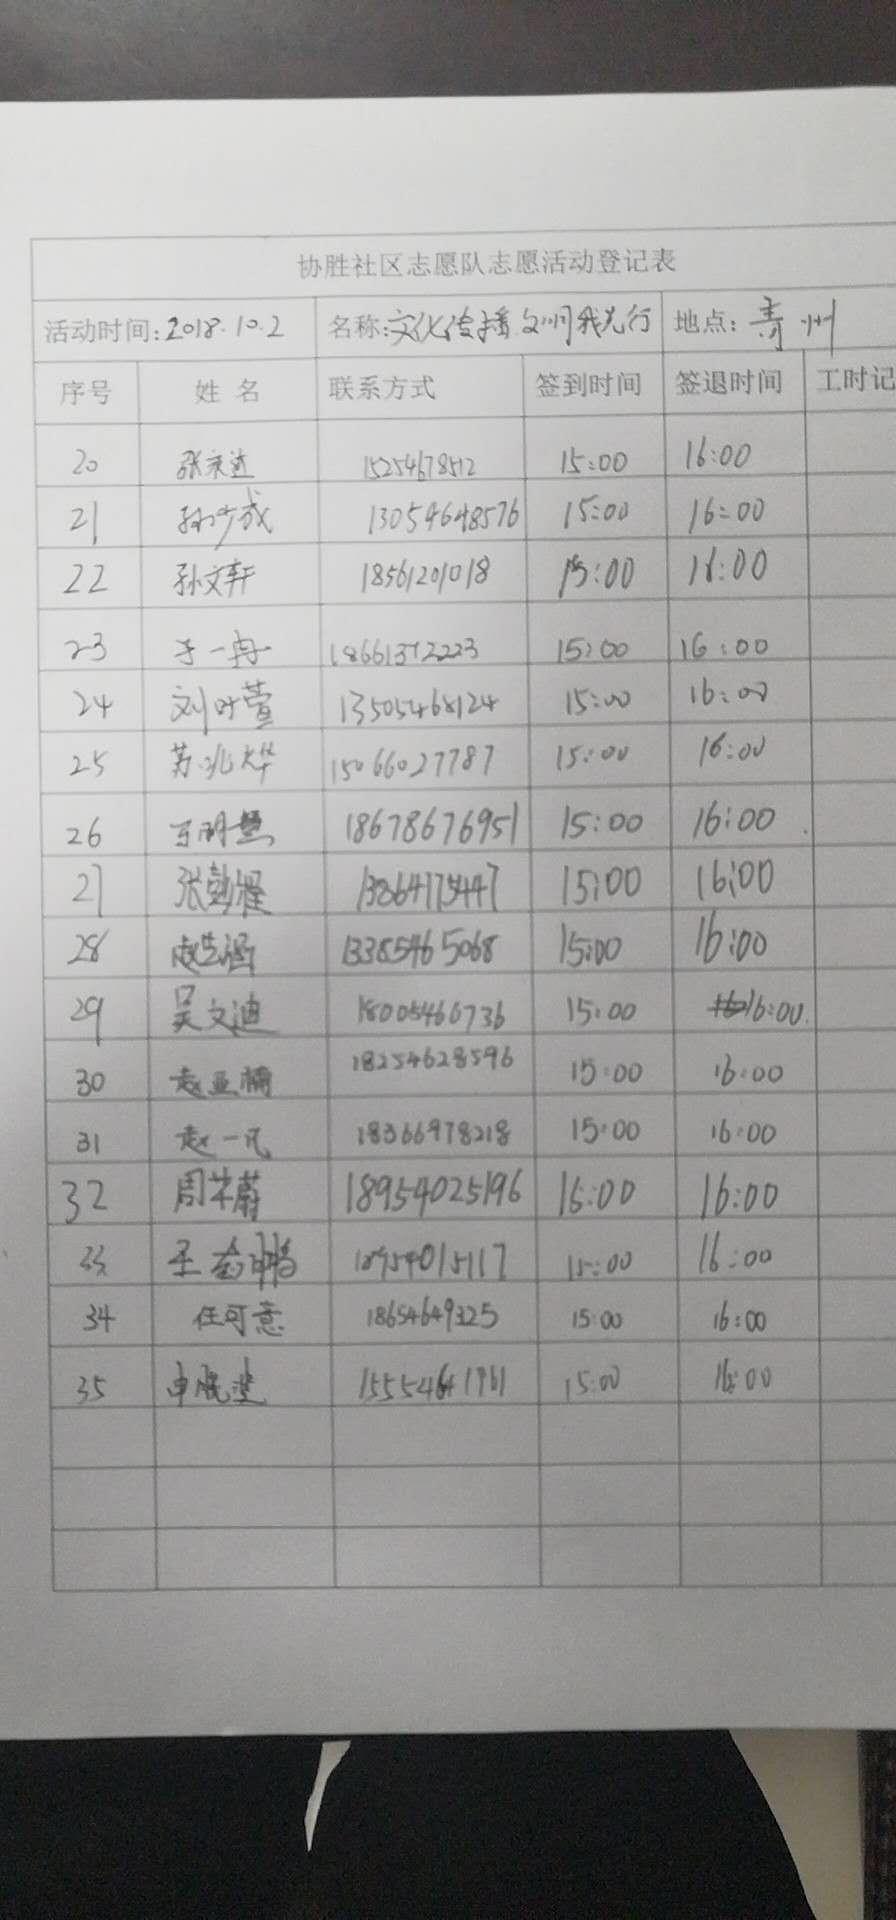 协胜社区志愿队志愿活动登记表
活动时间:2018.10.2 名称:文化传播 文明我先行 地点:青州
序号 姓名 联系方式 签到时间 签退时间 工时记
20 15254678512 15:00 16:00
21 孙少成 13054648576 15:00 16:00
22 孙文轩 18561201018 15:00 16:00
23 于一冉 18661372223 15:00 16:00
24 刘叶萱 13505468124 15:00 16:00
25 苏兆烨 15066027787 15:00 16:00
26 18678676951 15:00 16:00
27 13864175447 15:00 16:00
28 赵芸涵 13385465068 15:00 16:00
29 吴文迪 18005466736 15:00 16:00
30 赵亚楠 18254628596 15:00 16:00
31 赵一凡 18366978218 15:00 16:00
32 周芊蔚 18954025196 16:00 16:00
33 15:00 16:00
34 任可意 18654649325 15:00 16:00
35 15:00 16:00